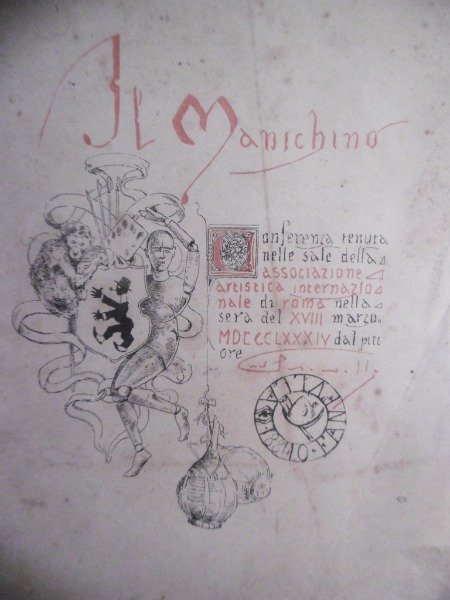 Il Manichino
Conferenza tenuta
nelle sale della
associazione
artistica internazio
nale di roma nella
sera del XVIII marzo
MDCCCLXXXIV dal pitt
ore